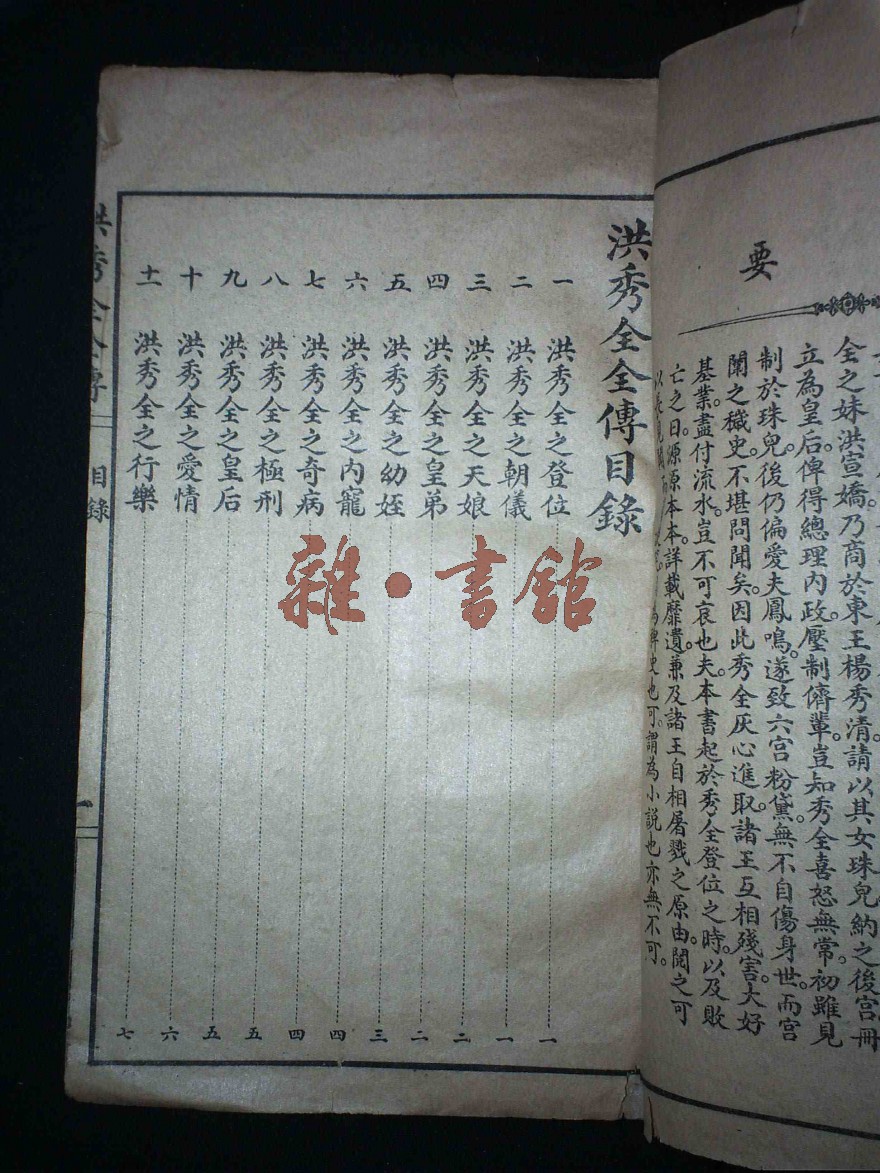 要
全之妹洪宣嬌。乃商於東王楊秀清。請以其女珠兒納之後宮冊
立為皇后。俾得總理內政。壓制儕輩。豈知秀全喜怒無常。初雖見
制於珠兒。後仍偏愛夫鳳鳴。遂致六宮粉黛。無不自傷身世。而宮
闈之穢史。不堪問聞矣。因此秀全灰心進取。諸王互相殘害。大好
基業。盡付流水。豈不可哀也夫。本書起於秀全登位之時。以及敗
亡之日。源源本本。詳載靡遺。兼及諸王自相屠戮之原由。閱之可
稗史也可。謂為小說也亦無不可。
洪秀全全傳目錄
一 洪秀全之登位 一
二 洪秀全之朝儀 一
三 洪秀全之天娘 二
四 洪秀全之皇弟 二
五 洪秀全之幼姪 三
六 洪秀全之內寵 四
七 洪秀全之奇病 四
八 洪秀全之極刑 五
九 洪秀全之皇后 五
十 洪秀全之愛情 六
十一 洪秀全之行樂 七
洪秀全全傳 目錄 一
雜·書館